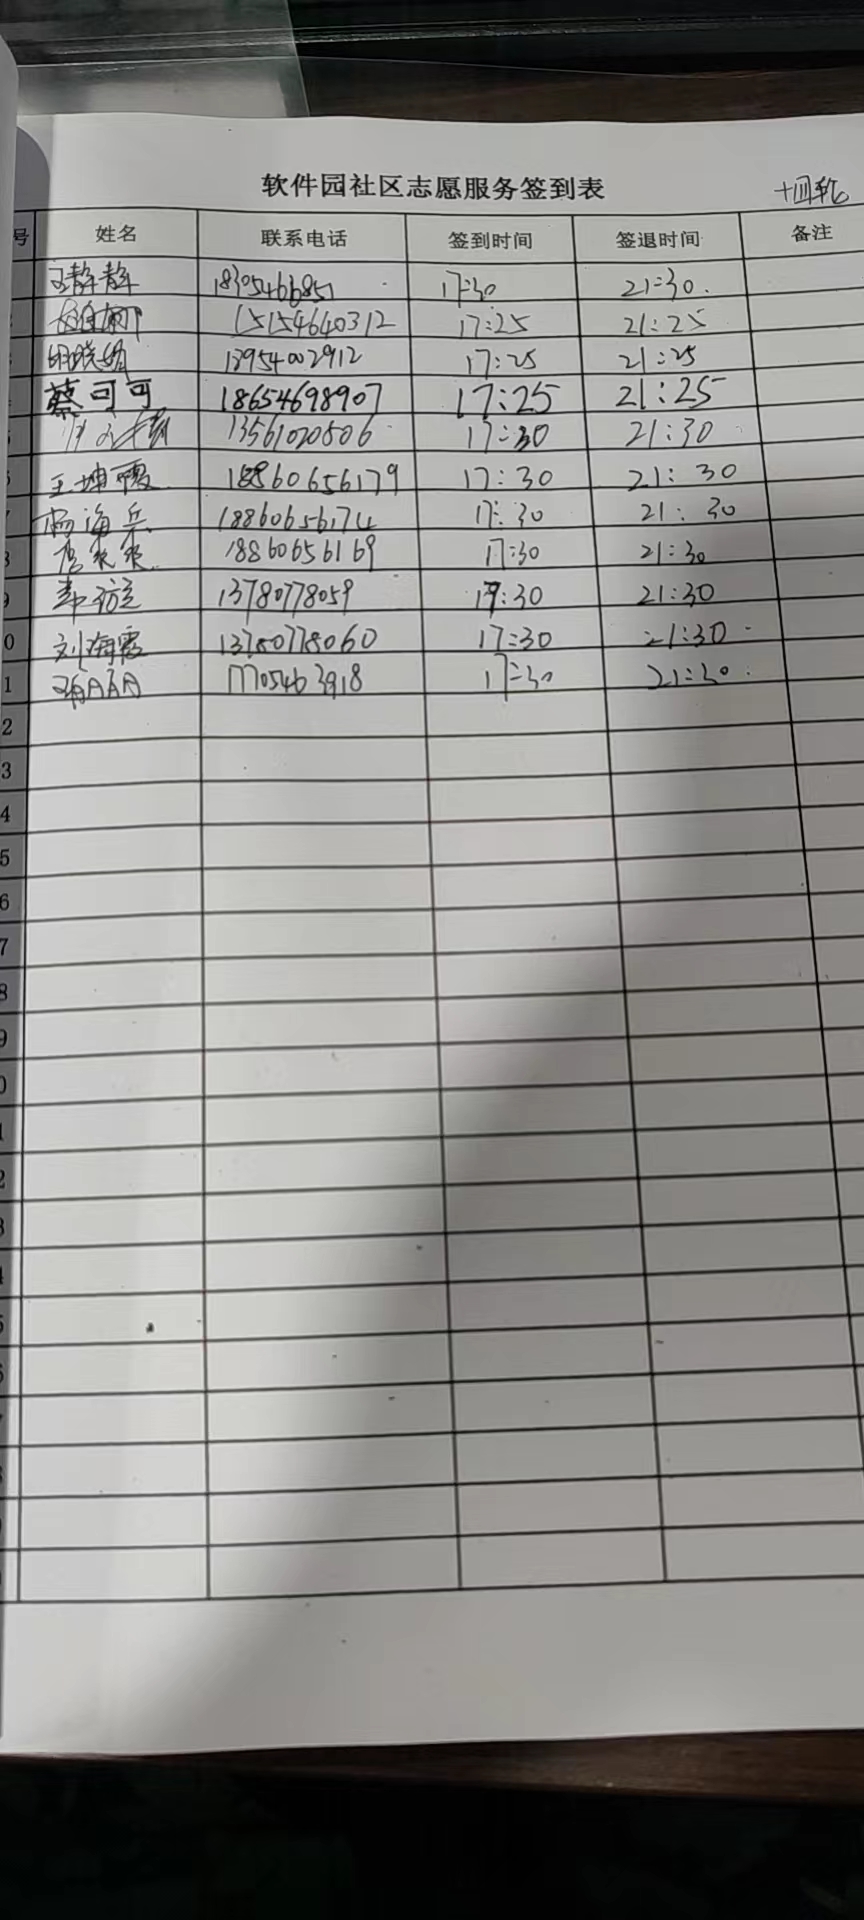 软件园社区志愿服务签到表 十四轮
号 姓名 联系电话 签到时间 签退时间 备注
王静静 18305466851 17:30 21:30.
15154640312 17:25 21:25
17:25 21:25
4 蔡可可 18654698907 17:25 21:25
5 13561020806 17:30 21:30
6 王坤霞 18860656179 17:30 21:30
7 杨海兵 18860656174 17:30 21:30
8 18860656169 17:30 21:30
9 13780778059 17:30 21:30
0 刘海霞 13780778060 17:30 21:30
1 17705463918 17:30 21:30.
2
3
4
5
6
7
8
9
0
1
2
3
4
5
6